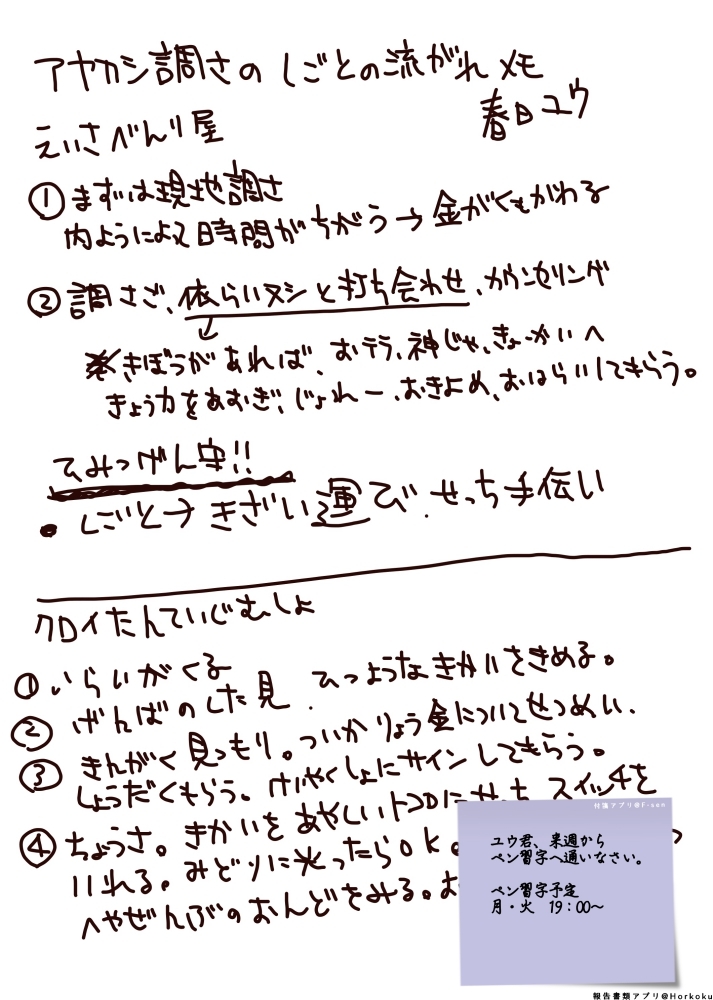 アヤカシ調さの しごとの流がれ メモ
春日ユウ
えいさべんり屋
① まずは現地調さ
内ようによって時間がちがう → 金がくもがわる
② 調さご、依らいヌシと打ち会わせ、カウンセリング
※きぼうがあれば、おテラ、神じゃ、きょーかいへ
きょう力をあおぎ、じょれー、おきよめ、おはらいしてもらう。
ひみつげん守!!
・しごと→きざい運び、せっち手伝い
クロイたんていじむしょ
① いらいがくる
② げんばのした見 ひつようなきかいをきめる。
③ きんがく見つもり。ついかりょう金についてせつめい、
しょうだくもらう。けいやくしょにサインしてもらう。
④ ちょうさ。きかいをあやしいトコロにせっち スイッチを
いれる。みどりに光ったらok。
へやぜんぶのおんどをみる。お
付箋アプリ@F-sen
ユウ君、来週から
ペン習字へ通いなさい。
ペン習字予定
月・火 19:00〜
報告書類アプリ@Horkoku